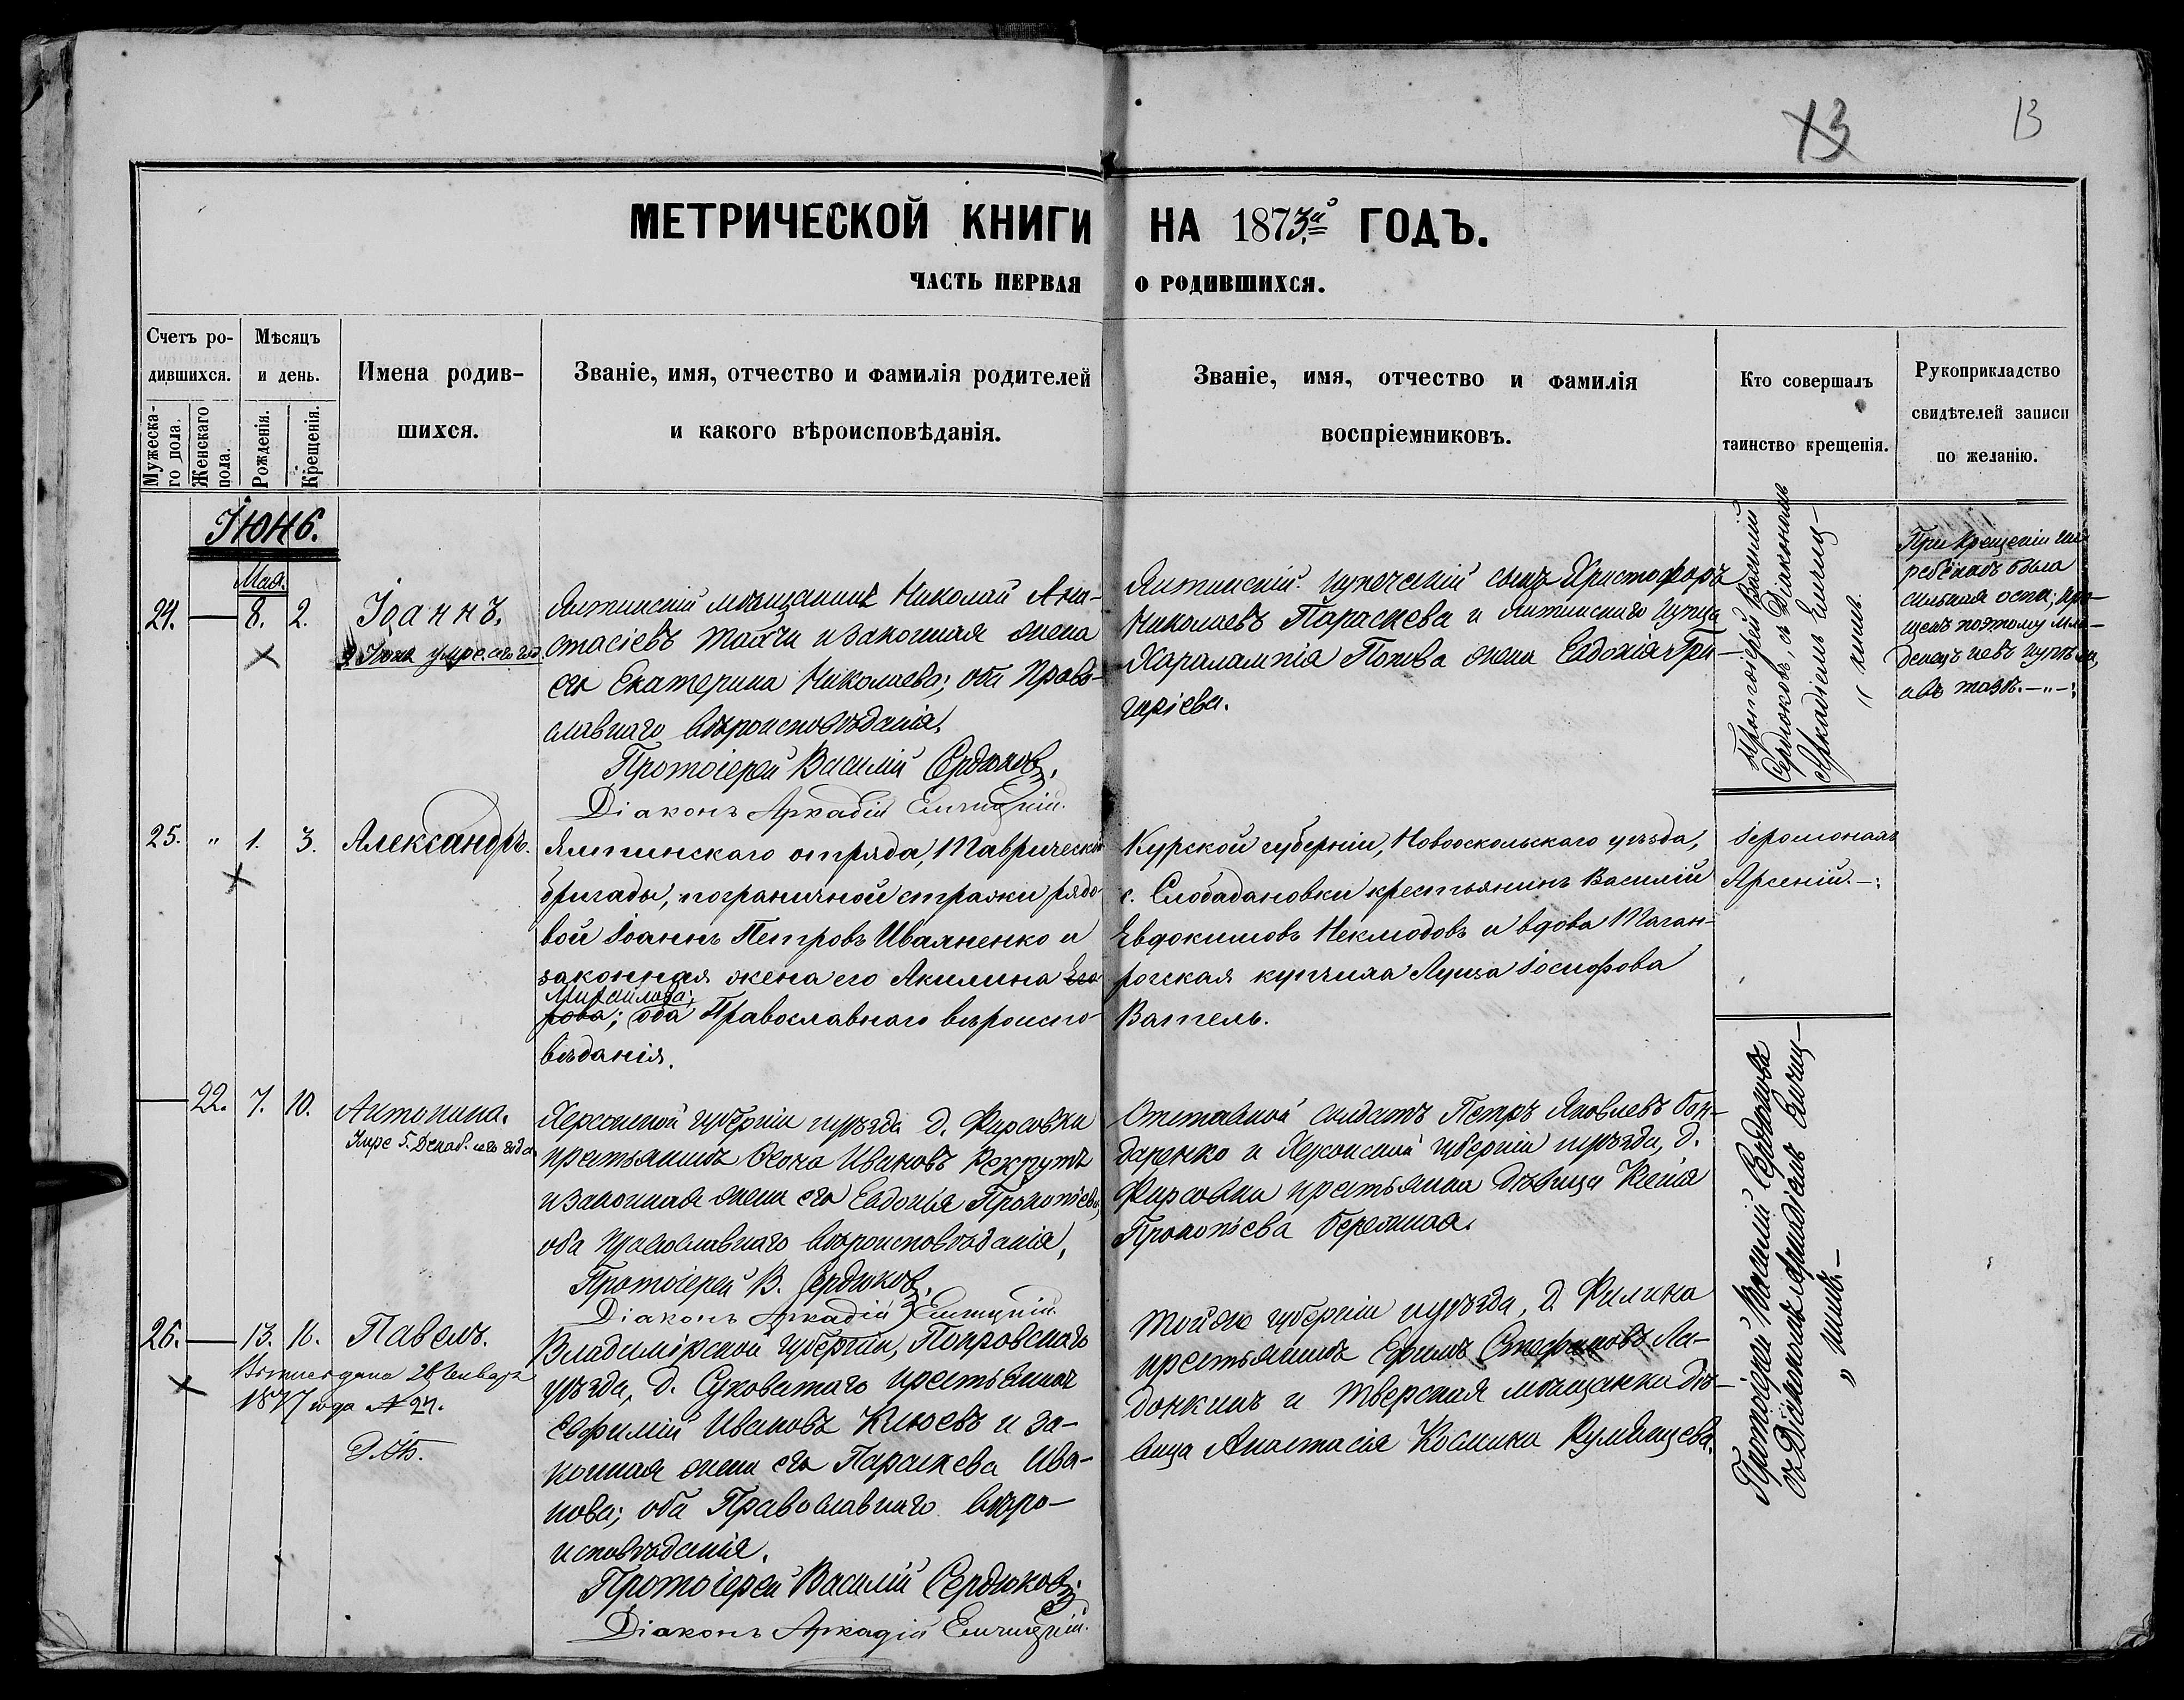 13
13
МЕТРИЧЕСКОЙ КНИГИ НА 1873й ГОДЪ.
ЧАСТЬ ПЕРВАЯ О РОДИВШИХСЯ.
Счетъ ро-
дившихся.
Мужеска-
го пола.
Женскаго
пола.
Мѣсяцъ
и день.
Рожденія.
Крещенія.
Имена родив-
шихся.
Званіе, имя, отчество и фамилія родителей
и какого вѣроисповѣданія.
Званіе, имя, отчество и фамилія
воспріемниковъ.
Кто совершалъ
таинство крещенія.
Рукоприкладство
свидѣтелей записи
по желанію.
Іюнь.
Мая.
24. — 8. 2.
Іоаннъ.
Ялтинскій мѣщанинъ Николай Ана-
стасіевъ и законная жена
его Екатерина Николаева; оба Право-
славнаго вѣроисповѣданія.
Протоіерей Василій Сердюковъ.
Діаконъ Аркадій
Ялтинскій купеческій сынъ Христофоръ
Николаевъ Параскева и Ялтинскаго купца
Харалампія Попова жена Евдокія Гри-
горіева.
Протоіерей Василій
Сердюковъ, съ Діакономъ
Аркадіемъ
При крещеніи
ребёнкѣ была
сильная оспа; кре-
щенъ поэтому мла-
денецъ не въ купѣли,
а въ тазѣ. —„—:
25. „ 1. 3.
Александръ.
Ялтинскаго отряда, Таврической
бригады, пограничной стражи рядо-
вой Іоаннъ Петровъ Иваненко и
законная жена его Акилина Его-
Михайлова;
рова; оба Православнаго вѣроиспо-
вѣданія.
Курской губерніи, Новооскольскаго уѣзда,
с. Слободановки крестьянинъ Василій
Евдокимовъ Неклюдовъ и вдова Таган-
рогская купчиха Луиза Іосифова
Ватель.
Іеромонахъ
Арсеній. —:
— 22. 7. 10.
Антонина.
Умре 5. Декаб. сего года
Херсонской губерніи и уѣзда д. Фирсовки
крестьянинъ Ивановъ Рекрутъ
и законная жена его Евдокія Прокопіева,
оба Православнаго вѣроисповѣданія,
Протоіерей В. Сердюковъ.
Діаконъ Аркадій
Отставной солдатъ Петръ Яковлевъ Бон-
даренко и Херсонской губерніи и уѣзда, д.
Фирсовки крестьянка дѣвица Ксенія
Прокопіева Бережная.
Протоіерей Василій Сердюковъ
съ Діакономъ Аркадіемъ
26. — 13. 16.
Павелъ.
28 Января
1877 года № 27.
Владимірской губерніи, Покровскаго
уѣзда, д. Суковатаго крестьянинъ
Евфимій Ивановъ Клюевъ и за-
конная жена его Параскева Ива-
нова; оба Православнаго вѣро-
исповѣданія.
Протоіерей Василій Сердюковъ.
Діаконъ Аркадій
Той же губерніи и уѣзда, д. Филина
крестьянинъ Ефимъ Стефановъ Ла-
донкинъ и Тверская мѣщанка дѣ-
вица Анастасія Космина Румянцева.